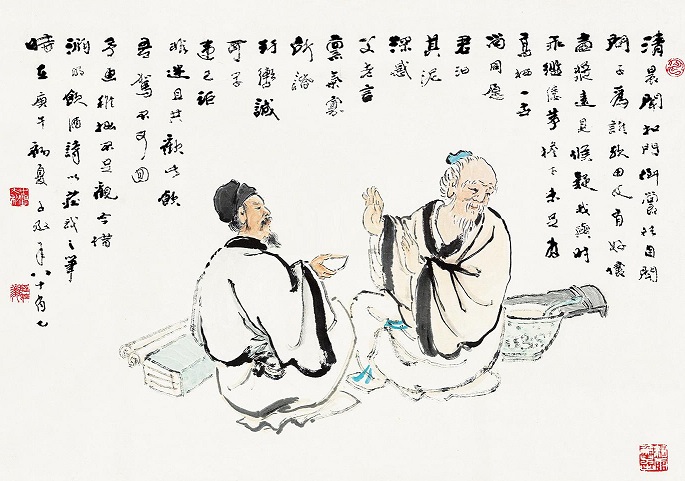 清晨聞扣門倒裳往自開
問子為誰歟田父有好懷
壺漿遠見候疑我與時
乖襤縷茅檐下未足為
高栖一世
尚同愿
君汩
其泥
深感
父老言
稟氣寡
所諧
紆轡誠
可學
違己詎
非迷且共歡此飲
吾駕不可回
予畫雖拙不足觀今借
淵明飲酒詩以莊我之筆
時在庚午初夏子年八十有七